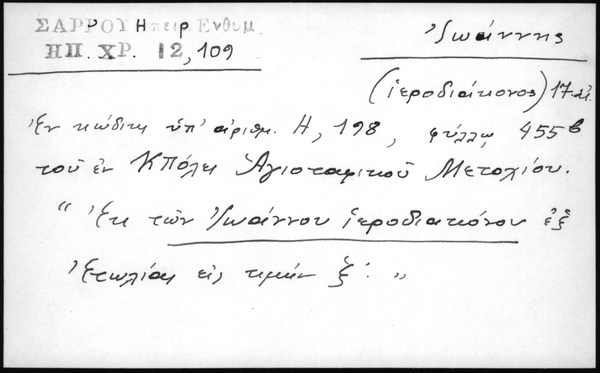 ΣΑΡΡΟΥ Ηπειρ. Ενθυμ.
ΗΠ. ΧΡ. 12, 109
Ἰωάννης
(ἱεροδιάκονος) 17 αἰ.
Ἐν κώδικι ὑπ' ἀριθμ. Η, 198, φύλλῳ 455β
τοῦ ἐν ΚΠόλει Ἁγιοταφικοῦ Μετοχίου.
"Ἐκ τῶν Ἰωάννου ἱεροδιακόνου ἐξ
Αἰτωλίας εἰς τιμήν ξ΄."